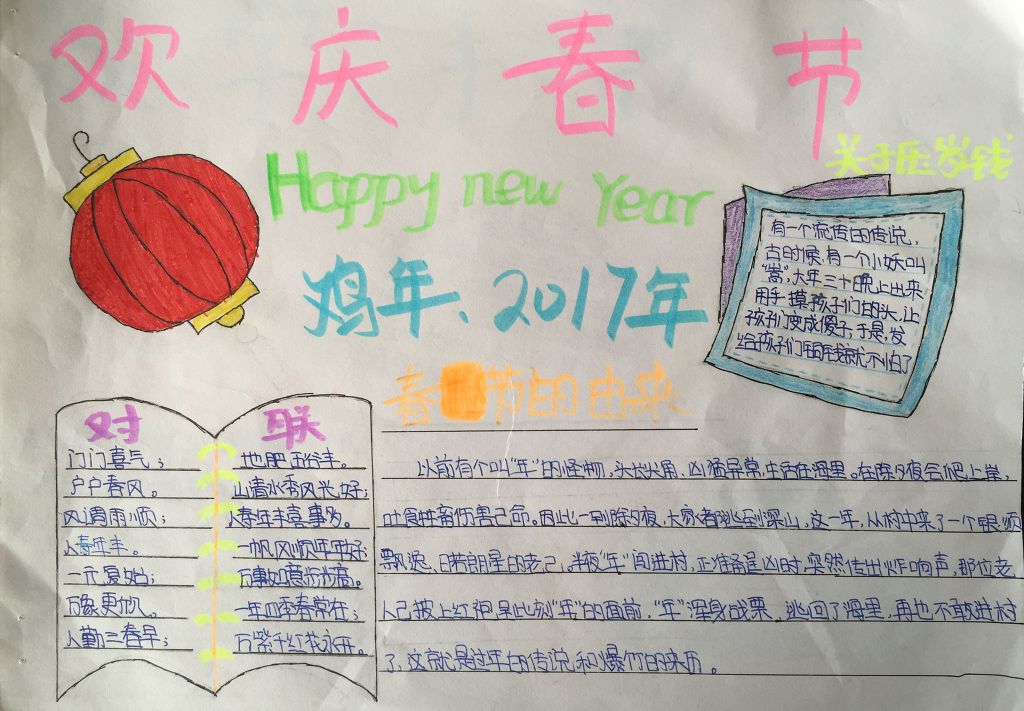 欢庆春节
关于压岁钱
Happy new Year
鸡年、2017年
有一个流传的传说,
古时候,有一个小妖叫
"祟",大年三十晚上出来
用手摸孩子们的头,让
孩子们变成傻子,于是,发
给孩子们压岁钱就不怕了
春节的由来
对联
门门喜气;
户户春风。
风调雨顺;
人寿年丰。
一元复始;
万象更
人勤三春早;
地肥五谷丰。
山清水秀风光好;
人寿年丰喜事多。
一帆风顺年年好;
万事如意步步高。
一年四季春常在;
万紫千红花永开。
以前有个叫"年"的怪物,头长火角,凶猛异常,生活在海里。在除夕夜会爬上岸,
吐食牲畜伤害己命。因此一到除夕夜,大家都逃到深山,这一年,从村中来了一个银须
飘逸、目若朗星的老己。半夜"年"闯进村,正准备逞凶时,突然传出炸响声,那位老
人己披上红袍 此刻"年"的面前,"年"浑身战栗,逃回了海里,再也不敢进村
了,这就是过年的传说和爆竹的来历。